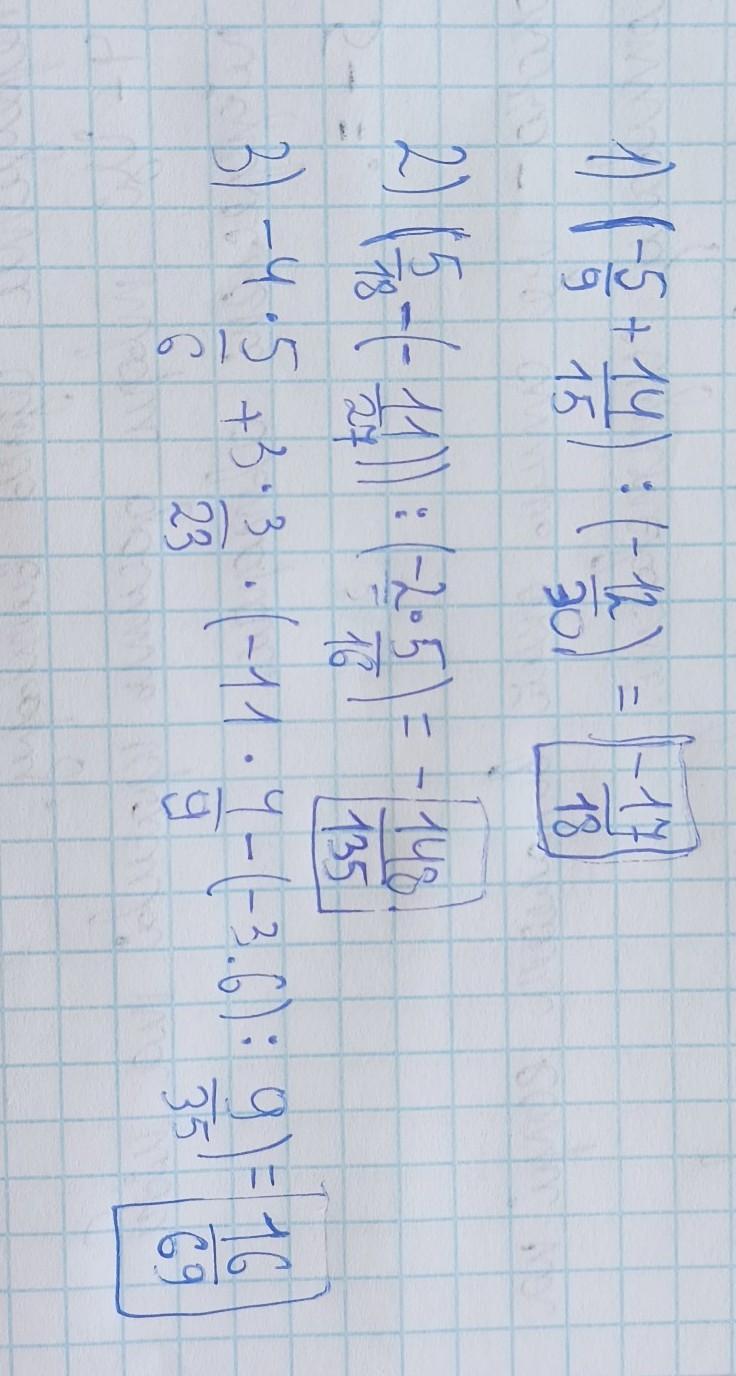 1) (-5/9 + 14/15) : (-12/30) = -17/18
2) (5/18 - (-11/27)) : (-2 · 5/16) = -148/135
3) -4 · 5/6 + 3 · 3/23 · (-11 · 4/9 - (-3.6) : 9/35) = 16/69